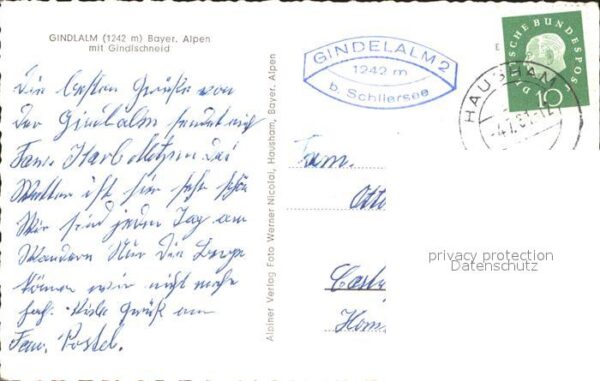 GINDLALM (1242 m) Bayer. Alpen
mit Gindlscheid
Die besten Grüße von
der Gindlalm sendet euch
Fam. Karl Das
Wetter ist hier sehr schön
Wir sind jeden Tag am
Wandern Nur die Berge
können wir nicht mehr
Viele Grüße an
Fam. Postel.
Alpiner Verlag Foto Werner Nicolai, Hausham, Bayer. Alpen
GINDELALM 2
1242 m
b. Schliersee
HAUSHAM
DEUTSCHE BUNDESPOST
10
Fam.
Otto
Hom
privacy protection
Datenschutz